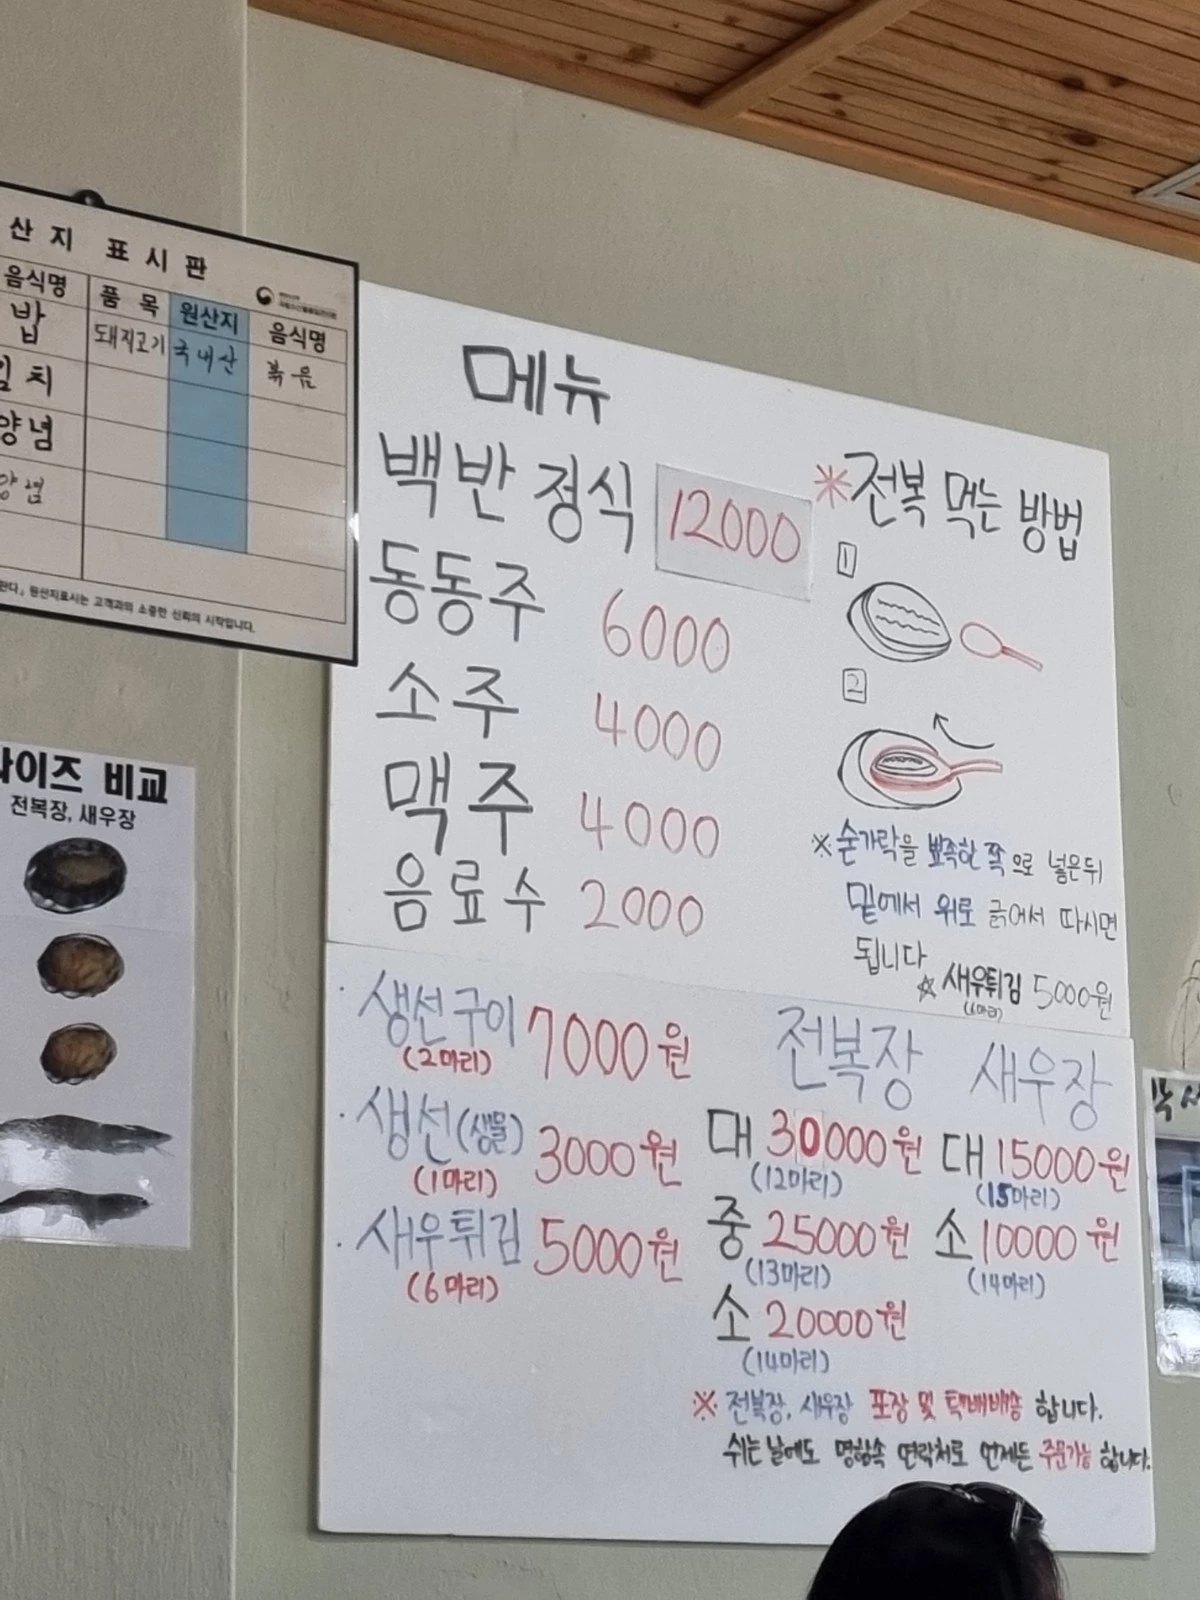 산지 표시판
음식명 품목 원산지 음식명
밥 돼지고기 국내산 볶음
치
양념
양념
원산지표시는 고객과의 소중한 신뢰의 시작입니다.
이즈 비교
전복장, 새우장
메뉴
백반 정식 12000
동동주 6000
소주 4000
맥주 4000
음료수 2000
*전복 먹는 방법
1
2
※숟가락을 뾰족한 쪽으로 넣은뒤
밑에서 위로 긁어서 따시면
됩니다
☆ 새우튀김 5000원
· 생선구이 7000원
(2마리)
· 생선(생물) 3000원
(1마리)
· 새우튀김 5000원
(6마리)
전복장
대 30000원
(12마리)
중 25000원
(13마리)
소 20000원
(14마리)
새우장
대 15000원
(15마리)
소 10000원
(14마리)
※ 전복장, 새우장 포장 및 택배배송 합니다.
쉬는날에도 명함속 연락처로 언제든 주문가능 합니다.